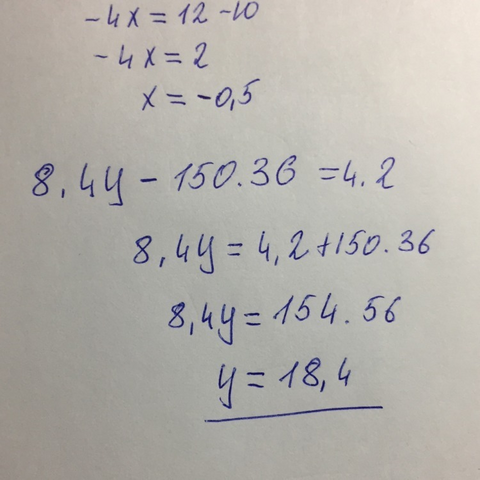 -4x = 12-10
-4x = 2
x = -0,5
8,4y - 150.36 = 4.2
8,4y = 4,2+150.36
8,4y = 154.56
y = 18,4